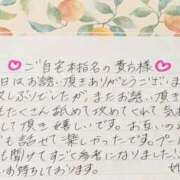 ♡ご自宅本指名の貴方様♡
日はお誘い頂きありがとうございま
久しぶりでしたが、またお誘い頂き
もたくさん舐めて攻めてくれて気
して頂き嬉しいです。お互いの
も話せて楽しかったです。プレ
も聞けてすごく為者になりました!
お待ちしております。